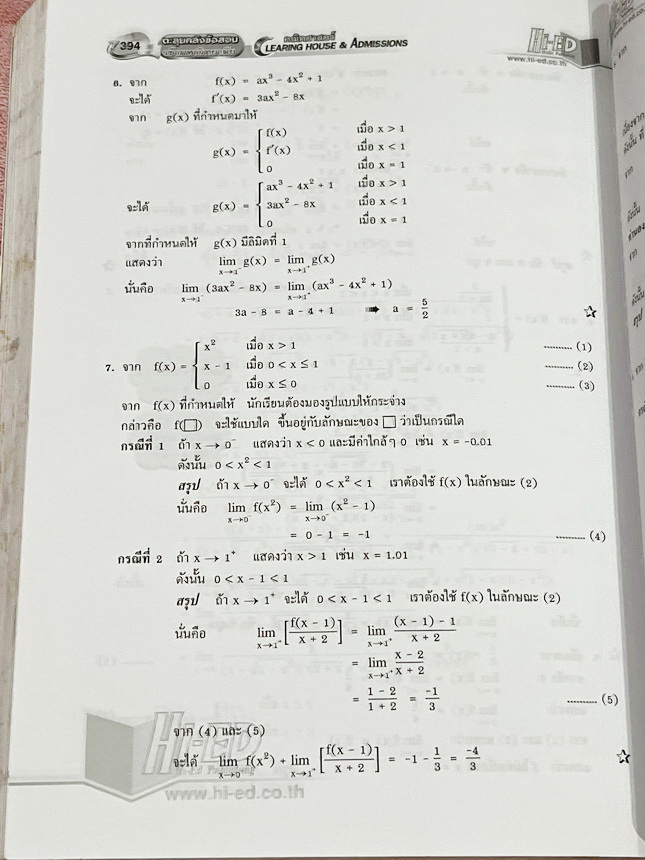 394 ตะลุยคลังข้อสอบ คณิตศาสตร์
CLEARING HOUSE & ADMISSIONS
Hi-ED
www.hi-ed.co.th
6. จาก f(x) = ax³ - 4x² + 1
จะได้ f'(x) = 3ax² - 8x
จาก g(x) ที่กำหนดมาให้
f(x) เมื่อ x > 1
g(x) = { f'(x) เมื่อ x < 1
0 เมื่อ x = 1
ax³ - 4x² + 1 เมื่อ x > 1
จะได้ g(x) = { 3ax² - 8x เมื่อ x < 1
0 เมื่อ x = 1
จากที่กำหนดให้ g(x) มีลิมิตที่ 1
แสดงว่า lim x→1⁻ g(x) = lim x→1⁺ g(x)
นั่นคือ lim x→1⁻ (3ax² - 8x) = lim x→1⁺ (ax³ - 4x² + 1)
3a - 8 = a - 4 + 1 ➠ a = 5/2 ☆
x² เมื่อ x > 1 .......... (1)
7. จาก f(x) = { x - 1 เมื่อ 0 < x ≤ 1 .......... (2)
0 เมื่อ x ≤ 0 .......... (3)
จาก f(x) ที่กำหนดให้ นักเรียนต้องมองรูปแบบให้กระจ่าง
กล่าวคือ f(□) จะใช้แบบใด ขึ้นอยู่กับลักษณะของ □ ว่าเป็นกรณีใด
กรณีที่ 1 ถ้า x → 0⁻ แสดงว่า x < 0 และมีค่าใกล้ๆ 0 เช่น x = -0.01
ดังนั้น 0 < x² < 1
สรุป ถ้า x → 0⁻ จะได้ 0 < x² < 1 เราต้องใช้ f(x) ในลักษณะ (2)
นั่นคือ lim x→0⁻ f(x²) = lim x→0⁻ (x² - 1)
= 0 - 1 = -1 .......... (4)
กรณีที่ 2 ถ้า x → 1⁺ แสดงว่า x > 1 เช่น x = 1.01
ดังนั้น 0 < x - 1 < 1
สรุป ถ้า x → 1⁺ จะได้ 0 < x - 1 < 1 เราต้องใช้ f(x) ในลักษณะ (2)
นั่นคือ lim x→1⁺ [f(x - 1)/x + 2] = lim x→1⁺ (x - 1) - 1/x + 2
= lim x→1⁺ x - 2/x + 2
= 1 - 2/1 + 2 = -1/3 .......... (5)
จาก (4) และ (5)
จะได้ lim x→0⁻ f(x²) + lim x→1⁺ [f(x - 1)/x + 2] = -1 - 1/3 = -4/3 ☆
Hi-ED
Hi-Ed Publishing
www.hi-ed.co.th